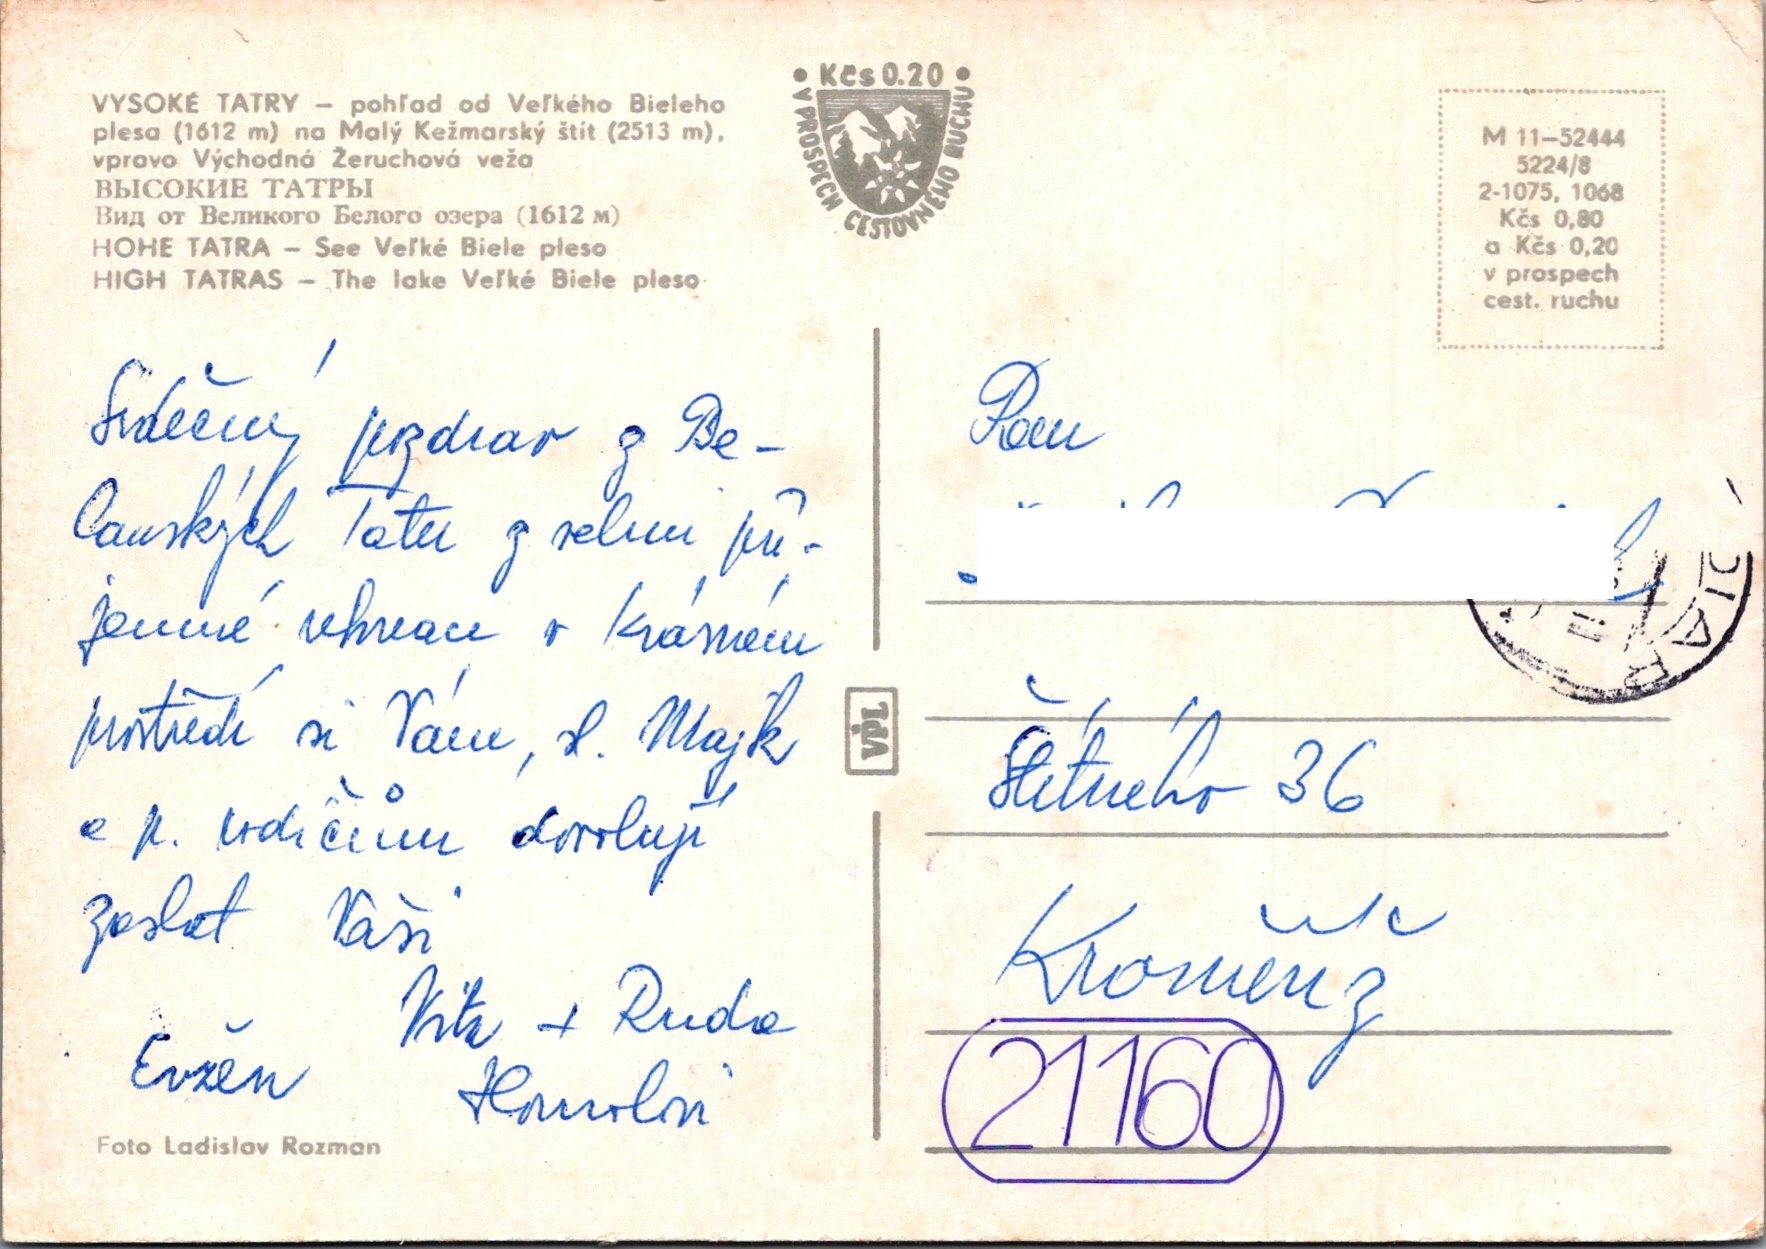 VYSOKÉ TATRY – pohľad od Veľkého Bieleho
plesa (1612 m) na Malý Kežmarský štít (2513 m),
vpravo Východná Žeruchová veža
ВЫСОКИЕ ТАТРЫ
Вид от Великого Белого озера (1612 м)
HOHE TATRA – See Veľké Biele pleso
HIGH TATRAS – The lake Veľké Biele pleso
• Kčs 0.20 •
V PROSPECH CESTOVNÉHO RUCHU
M 11–52444
5224/8
2-1075, 1068
Kčs 0,80
a Kčs 0,20
v prospech
cest. ruchu
Srdečný pozdrav z Be-
lanských Tater z velmi pří-
jemné rekreace v krásném
prostředí si Vám, sl. Majk
a p. rodičům dovolují
zaslat Vaši
Víta + Ruda
Evžen Homolovi
Foto Ladislav Rozman
Pan
Štítného 36
Kroměříž
21160